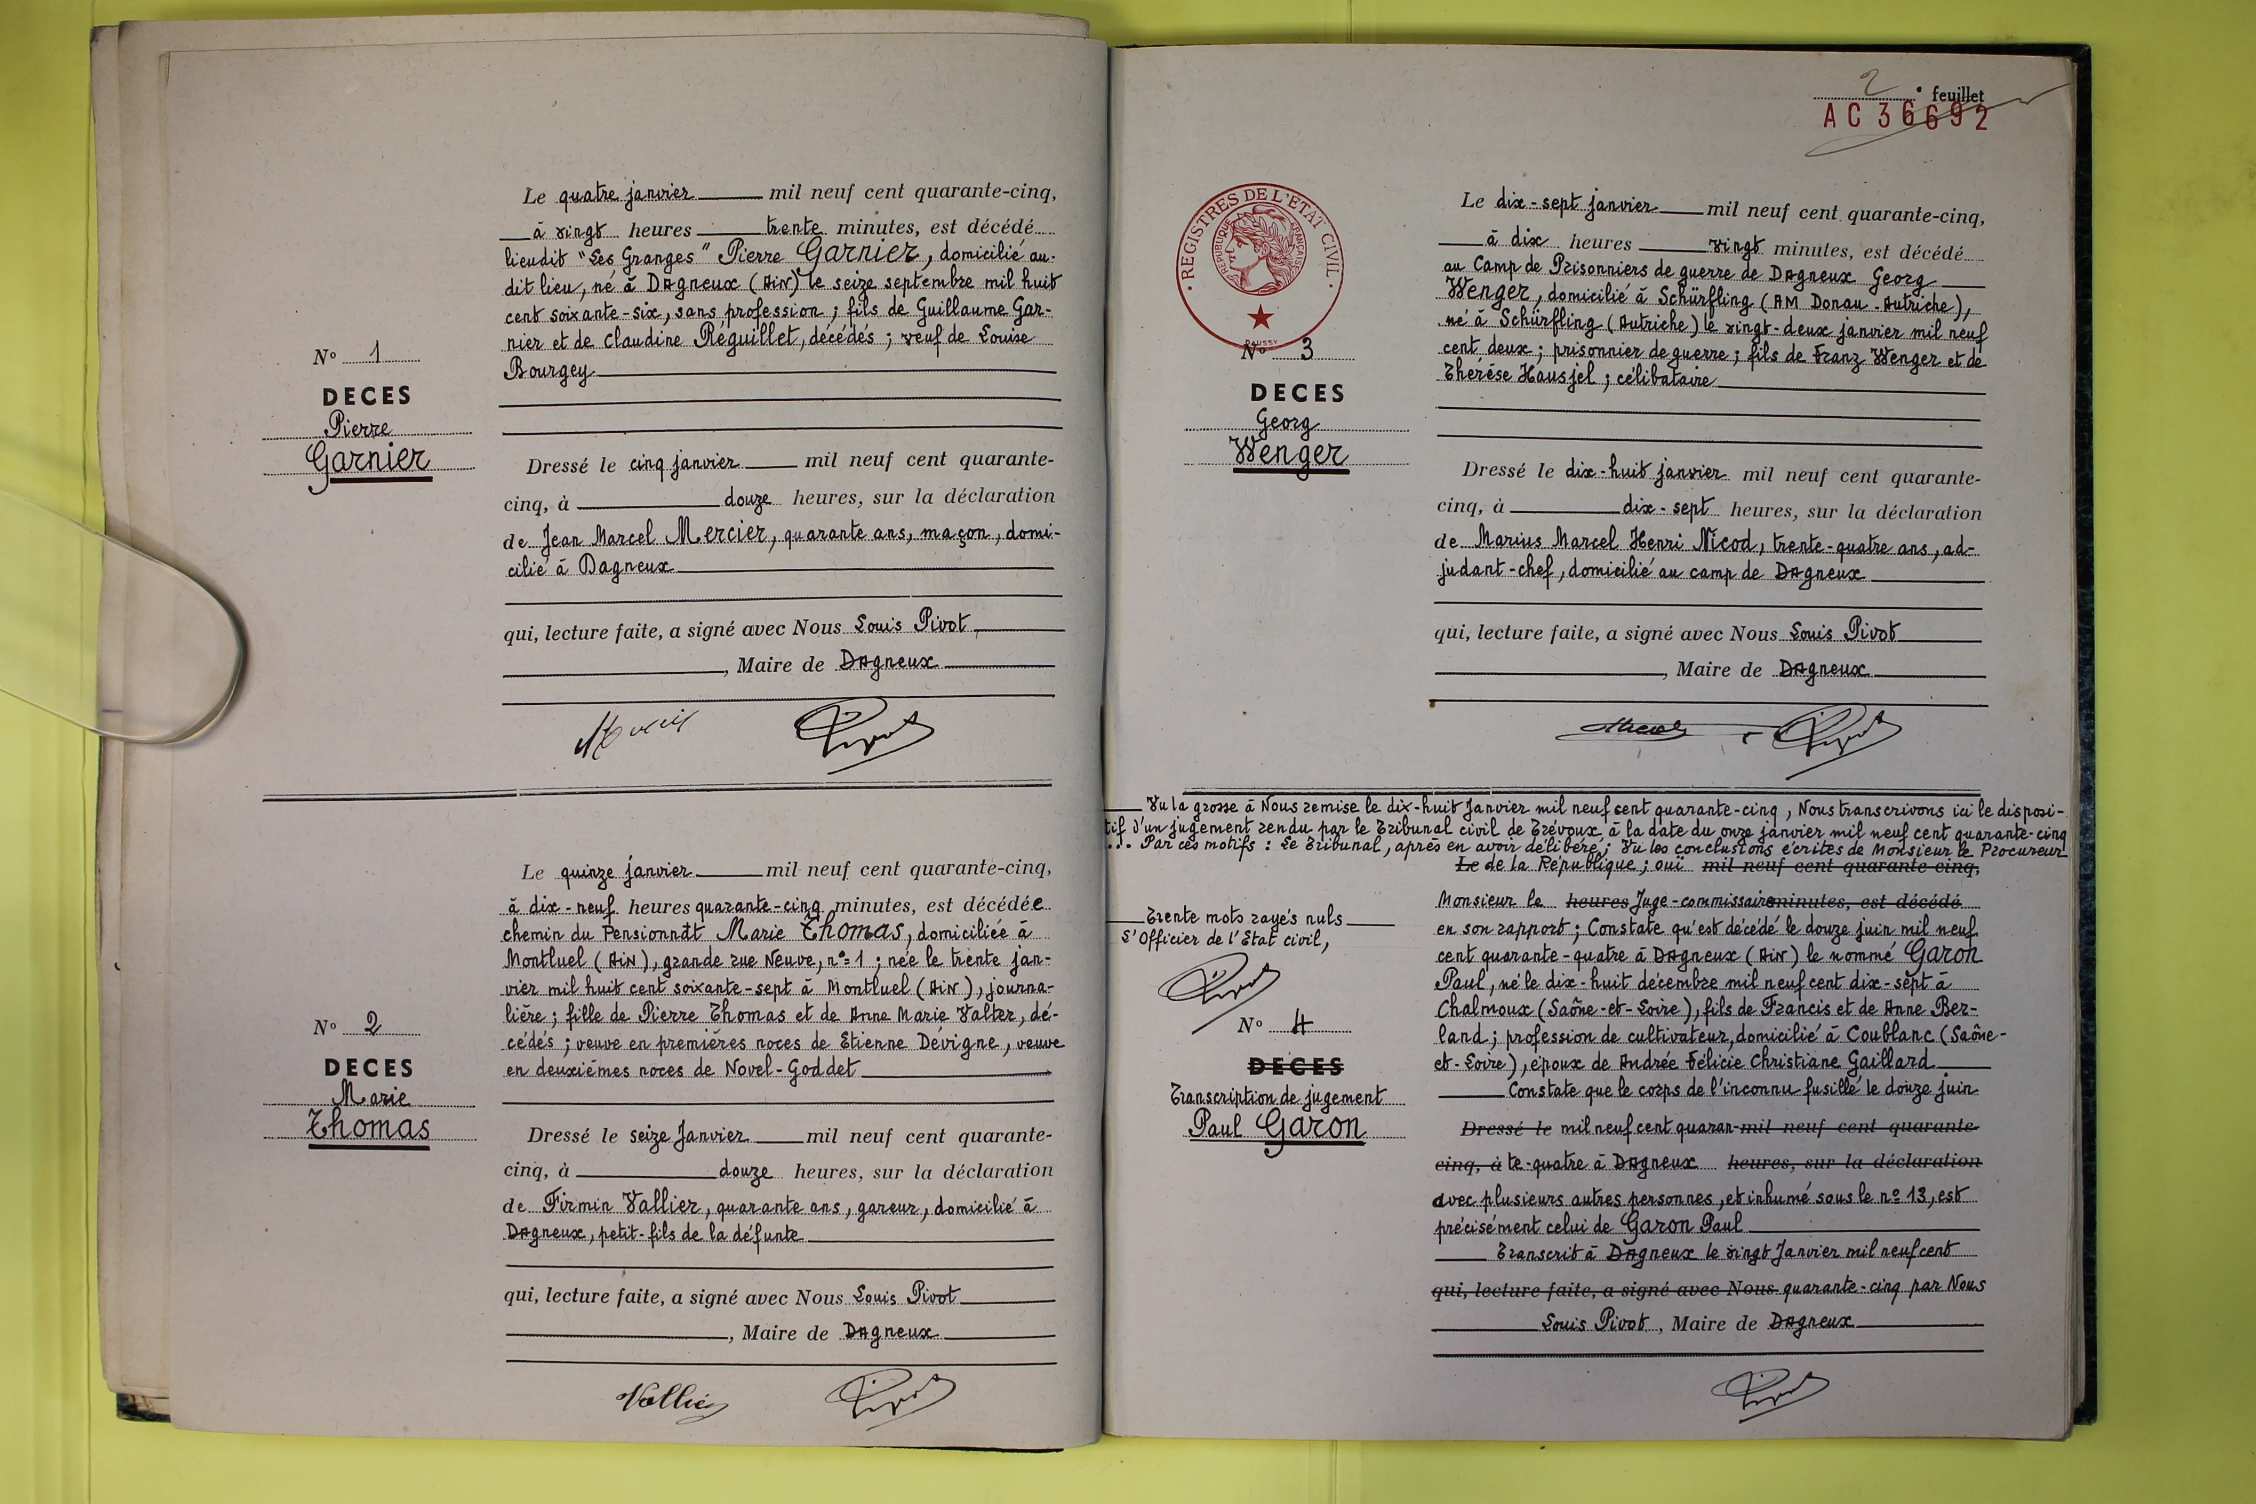 Le quatre janvier mil neuf cent quarante-cinq,
à vingt heures trente minutes, est décédé
lieudit "Les Granges" Pierre Garnier, domicilié au-
dit lieu, né à Dagneux (Ain) le seize septembre mil huit
cent soixante-six, sans profession ; fils de Guillaume Gar-
nier et de Claudine Réguillet, décédés ; veuf de Louise
Bourgey
Nº 1
DECES
Pierre
Garnier
Dressé le cinq janvier mil neuf cent quarante-
cinq, à douze heures, sur la déclaration
de Jean Marcel Mercier, quarante ans, maçon, domi-
cilié à Dagneux
qui, lecture faite, a signé avec Nous Louis Pivot
, Maire de Dagneux
Le quinze janvier mil neuf cent quarante-cinq,
à dix-neuf heures quarante-cinq minutes, est décédée
chemin du Pensionnat Marie Thomas, domiciliée à
Montluel (Ain), grande rue Neuve, nº 1 ; née le trente jan-
vier mil huit cent soixante-sept à Montluel (Ain), journa-
lière ; fille de Pierre Thomas et de Anne Marie Valter, dé-
cédés ; veuve en premières noces de Etienne Dévigne, veuve
en deuxièmes noces de Novel-Goddet
Nº 2
DECES
Marie
Thomas
Dressé le seize Janvier mil neuf cent quarante-
cinq, à douze heures, sur la déclaration
de Firmin Vallier, quarante ans, gareur, domicilié à
Dagneux, petit-fils de la défunte
qui, lecture faite, a signé avec Nous Louis Pivot
, Maire de Dagneux
Vallier
2e feuillet
AC 36692
REGISTRES DE L'ETAT CIVIL
REPUBLIQUE FRANÇAISE
Le dix-sept janvier mil neuf cent quarante-cinq,
à dix heures vingt minutes, est décédé
au Camp de Prisonniers de guerre de Dagneux Georg
Wenger, domicilié à Schürfling (AM Donau. Autriche),
né à Schürfling (Autriche) le vingt-deux janvier mil neuf
cent deux ; prisonnier de guerre ; fils de Franz Wenger et de
Therése Hausjel ; célibataire
Nº 3
DECES
Georg
Wenger
Dressé le dix-huit janvier mil neuf cent quarante-
cinq, à dix-sept heures, sur la déclaration
de Marius Marcel Henri Nicod, trente-quatre ans, ad-
judant-chef, domicilié au camp de Dagneux
qui, lecture faite, a signé avec Nous Louis Pivot
, Maire de Dagneux
Vu la grosse à Nous remise le dix-huit Janvier mil neuf cent quarante-cinq, Nous transcrivons ici le disposi-
tif d'un jugement rendu par le Tribunal civil de Trévoux à la date du onze janvier mil neuf cent quarante-cinq
... Par ces motifs : Le Tribunal, après en avoir délibéré ; Vu les conclusions écrites de Monsieur le Procureur
Le de la République ; ouï mil neuf cent quarante-cinq,
Monsieur le heures Juge-commissaire minutes, est décédé
en son rapport ; Constate qu'est décédé le douze juin mil neuf
cent quarante-quatre à Dagneux (Ain) le nommé Garon
Paul, né le dix-huit décembre mil neuf cent dix-sept à
Chalmoux (Saône-et-Loire), fils de Francis et de Anne Ber-
land ; profession de cultivateur, domicilié à Coublanc (Saône-
et-Loire), époux de Andrée Félicie Christiane Gaillard
Constate que le corps de l'inconnu fusillé le douze juin
Dressé le mil neuf cent quaran- mil neuf cent quarante-
cinq, à te-quatre à Dagneux heures, sur la déclaration
avec plusieurs autres personnes, et inhumé sous le nº 13, est
précisément celui de Garon Paul
Transcrit à Dagneux le vingt Janvier mil neuf cent
qui, lecture faite, a signé avec Nous quarante-cinq par Nous
Louis Pivot, Maire de Dagneux
Trente mots rayés nuls
L'Officier de l'Etat civil,
Nº 4
DECES
Transcription de jugement
Paul Garon